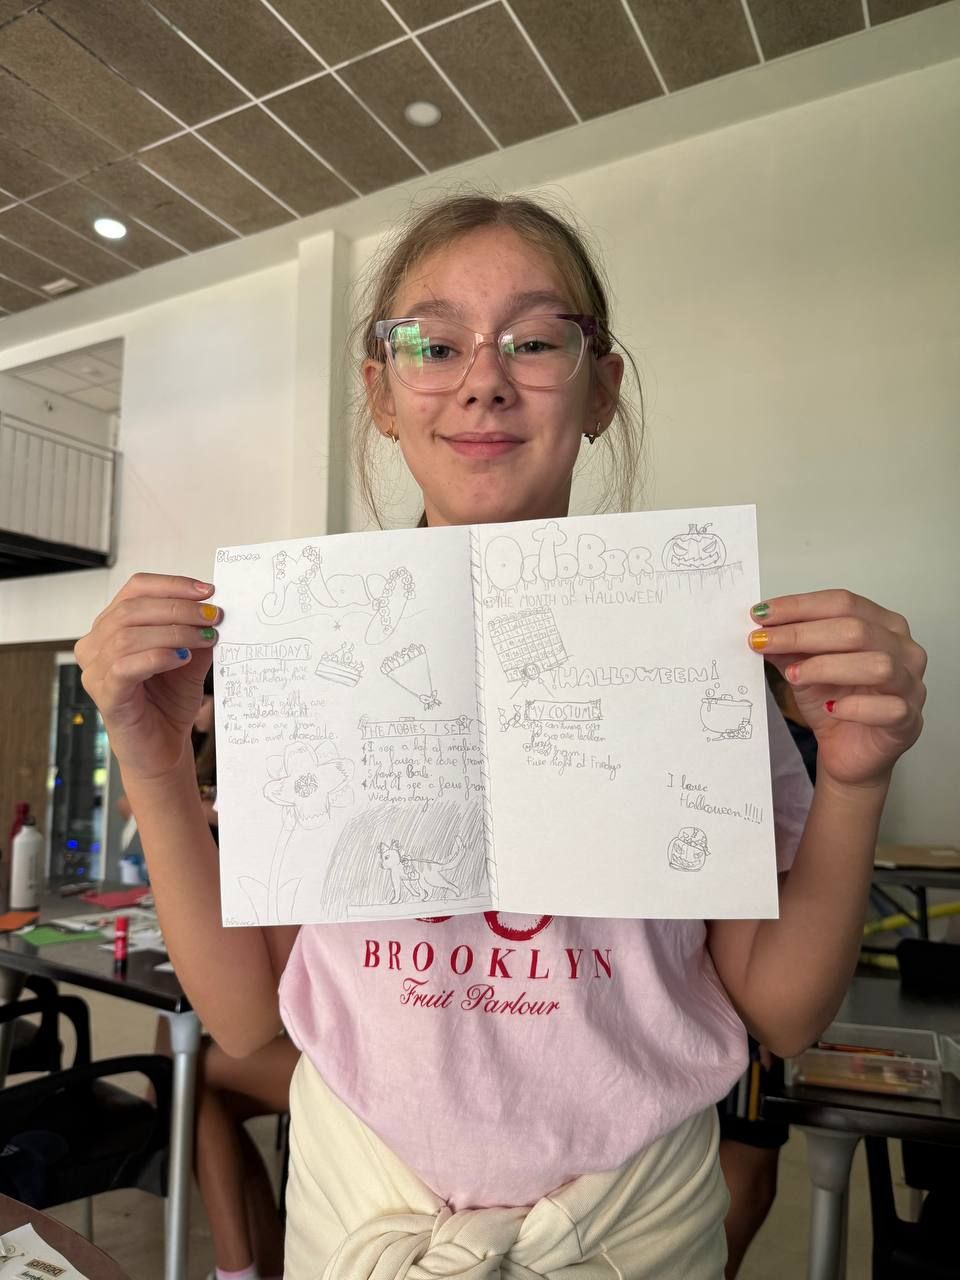 Blanca
May
¡MY BIRTHDAY!
In this month are
my birthday. Are
the 18th
One of the gifts are
The cake are from
cookies and chocolate.
THE MOBIES I SEE
I see a lot of mobies
My favourite are from
Strange
And I see a few from
Wednesday.
Blanca
OCTOBER
THE MONTH OF HALLOWEEN
¡HALLOWEEN!
MY COSTUME
My costume are
from
Five night at Freddys
I love
Halloween!!!!!
BROOKLYN
Fruit Parlour